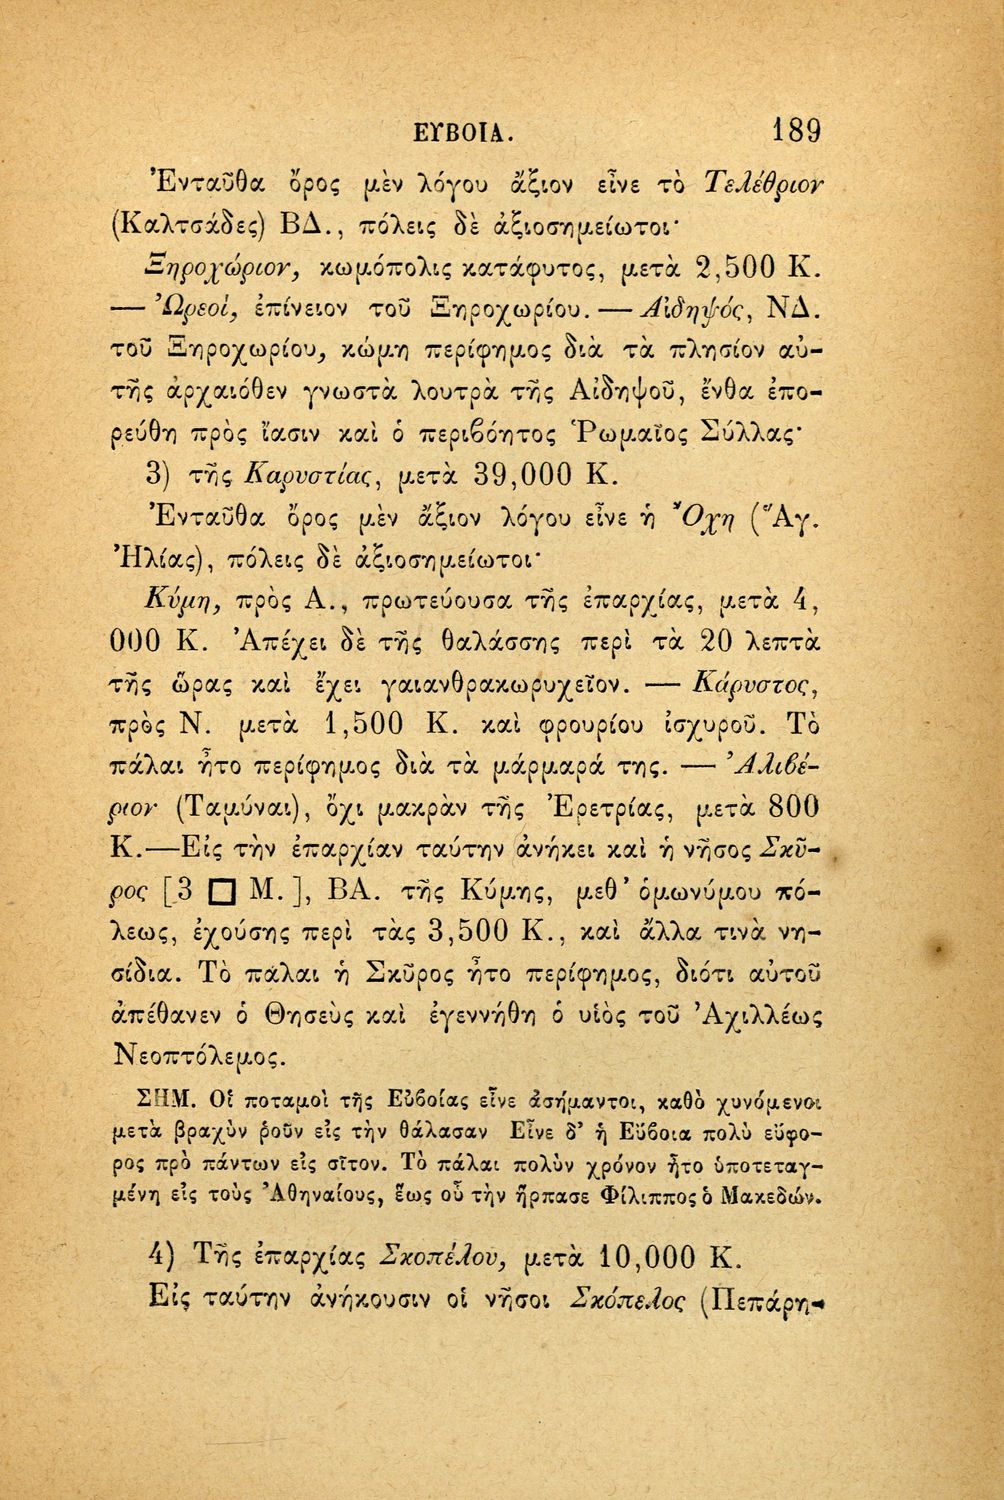 ΕΥΒΟΙΑ. 189
Ἐνταῦθα ὄρος μὲν λόγου ἄξιον εἶνε τὸ Τελέθριον
(Καλτσάδες) ΒΔ., πόλεις δὲ ἀξιοσημείωτοι·
Ξηροχώριον, κωμόπολις κατάφυτος, μετὰ 2,500 Κ.
— Ὠρεοί, ἐπίνειον τοῦ Ξηροχωρίου. — Αἰδηψός, ΝΔ.
τοῦ Ξηροχωρίου, κώμη περίφημος διὰ τὰ πλησίον αὐ-
τῆς ἀρχαιόθεν γνωστὰ λουτρὰ τῆς Αἰδηψοῦ, ἔνθα ἐπο-
ρεύθη πρὸς ἴασιν καὶ ὁ περιβόητος Ῥωμαῖος Σύλλας·
3) τῆς Καρυστίας, μετὰ 39,000 Κ.
Ἐνταῦθα ὄρος μὲν ἄξιον λόγου εἶνε ἡ Ὄχη (Ἅγ.
Ἠλίας), πόλεις δὲ ἀξιοσημείωτοι·
Κύμη, πρὸς Α., πρωτεύουσα τῆς ἐπαρχίας, μετὰ 4,
000 Κ. Ἀπέχει δὲ τῆς θαλάσσης περὶ τὰ 20 λεπτὰ
τῆς ὥρας καὶ ἔχει γαιανθρακωρυχεῖον. — Κάρυστος,
πρὸς Ν. μετὰ 1,500 Κ. καὶ φρουρίου ἰσχυροῦ. Τὸ
πάλαι ἦτο περίφημος διὰ τὰ μάρμαρά της. — Ἀλιβέ-
ριον (Ταμύναι), ὄχι μακρὰν τῆς Ἐρετρίας, μετὰ 800
Κ.—Εἰς τὴν ἐπαρχίαν ταύτην ἀνήκει καὶ ἡ νῆσος Σκῦ-
ρος [3 □ Μ.], ΒΑ. τῆς Κύμης, μεθ' ὁμωνύμου πό-
λεως, ἐχούσης περὶ τὰς 3,500 Κ., καὶ ἄλλα τινὰ νη-
σίδια. Τὸ πάλαι ἡ Σκῦρος ἦτο περίφημος, διότι αὐτοῦ
ἀπέθανεν ὁ Θησεὺς καὶ ἐγεννήθη ὁ υἱὸς τοῦ Ἀχιλλέως
Νεοπτόλεμος.
ΣΗΜ. Οἱ ποταμοὶ τῆς Εὐβοίας εἶνε ἀσήμαντοι, καθὸ χυνόμενοι
μετὰ βραχὺν ῥοῦν εἰς τὴν θάλασαν Εἶνε δ' ἡ Εὔβοια πολὺ εὔφο-
ρος πρὸ πάντων εἰς σῖτον. Τὸ πάλαι πολὺν χρόνον ἦτο ὑποτεταγ-
μένη εἰς τοὺς Ἀθηναίους, ἕως οὗ τὴν ἥρπασε Φίλιππος ὁ Μακεδών.
4) Τῆς ἐπαρχίας Σκοπέλου, μετὰ 10,000 Κ.
Εἰς ταύτην ἀνήκουσιν οἱ νῆσοι Σκόπελος (Πεπάρη-